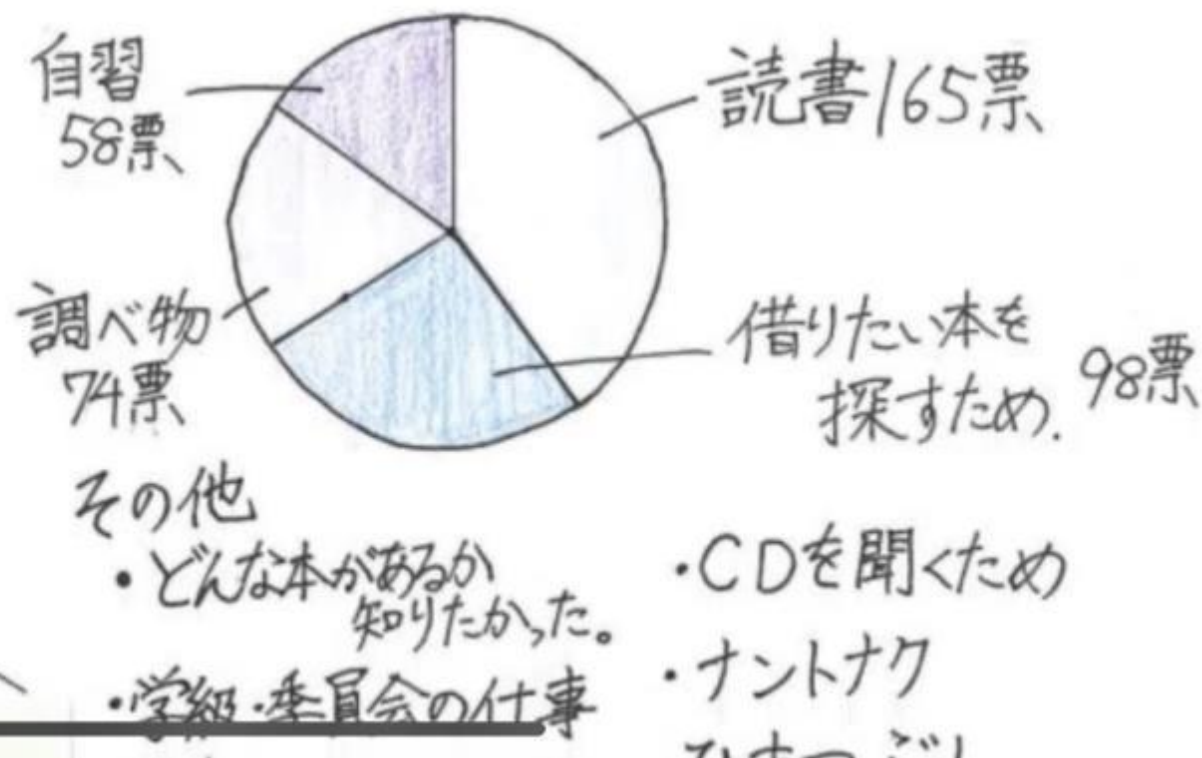 自習
58票
読書165票
調べ物
74票
借りたい本を
探すため.
98票
その他
・どんな本があるか
知りたかった。
・学級・委員会の仕事
・CDを聞くため
・ナントナク